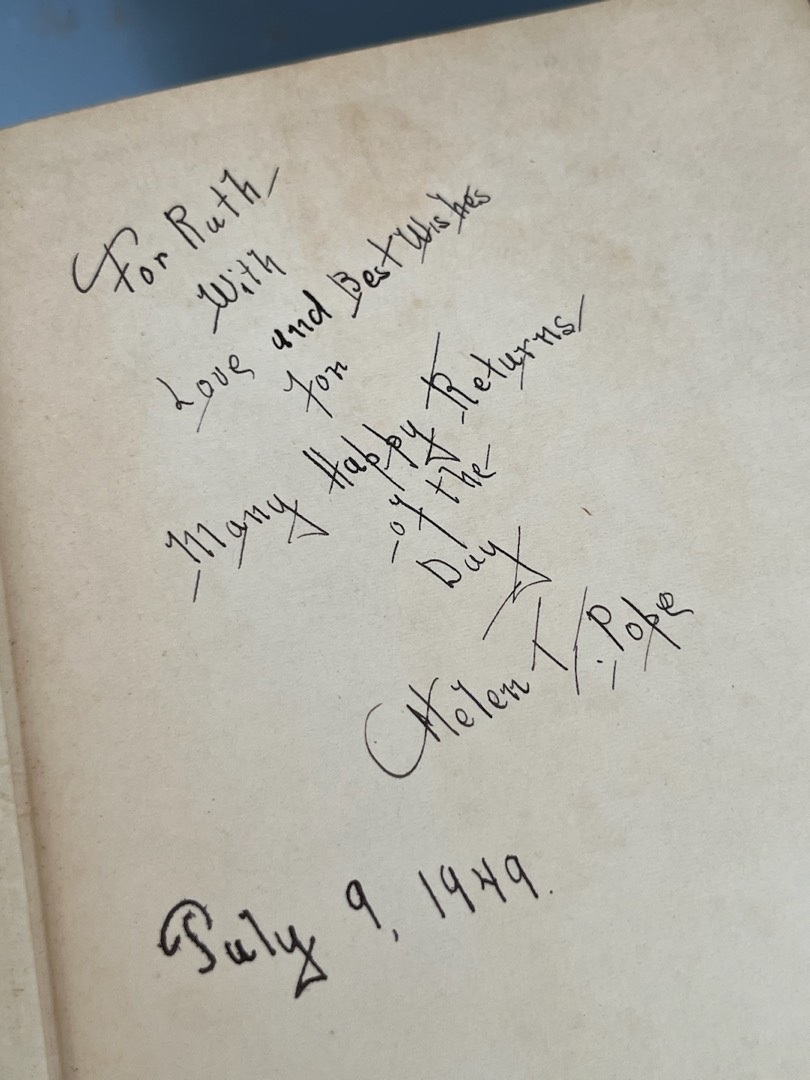 For Ruth
With
Love and Best Wishes
For
Many Happy Returns
of the
Day
Helen T. Pope
July 9, 1949.